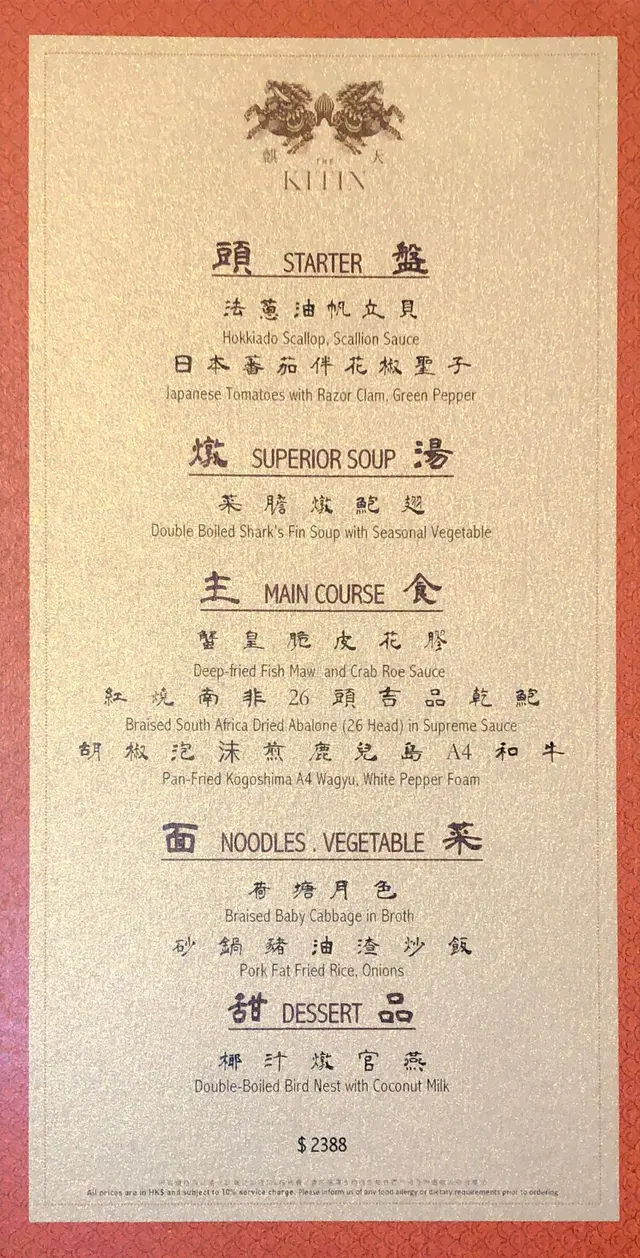 麒 天
THE
KITIN
頭 STARTER 盤
法蔥油帆立貝
Hokkiado Scallop, Scallion Sauce
日本番茄伴花椒聖子
Japanese Tomatoes with Razor Clam, Green Pepper
燉 SUPERIOR SOUP 湯
菜膽燉鮑翅
Double Boiled Shark's Fin Soup with Seasonal Vegetable
主 MAIN COURSE 食
蟹皇脆皮花膠
Deep-fried Fish Maw and Crab Roe Sauce
紅燒南非26頭吉品乾鮑
Braised South Africa Dried Abalone (26 Head) in Supreme Sauce
胡椒泡沫煎鹿兒島A4和牛
Pan-Fried Kogoshima A4 Wagyu, White Pepper Foam
面 NOODLES . VEGETABLE 菜
荷塘月色
Braised Baby Cabbage in Broth
砂鍋豬油渣炒飯
Pork Fat Fried Rice, Onions
甜 DESSERT 品
椰汁燉官燕
Double-Boiled Bird Nest with Coconut Milk
$ 2388
All prices are in HK$ and subject to 10% service charge. Please inform us of any food allergy or dietary requirements prior to ordering